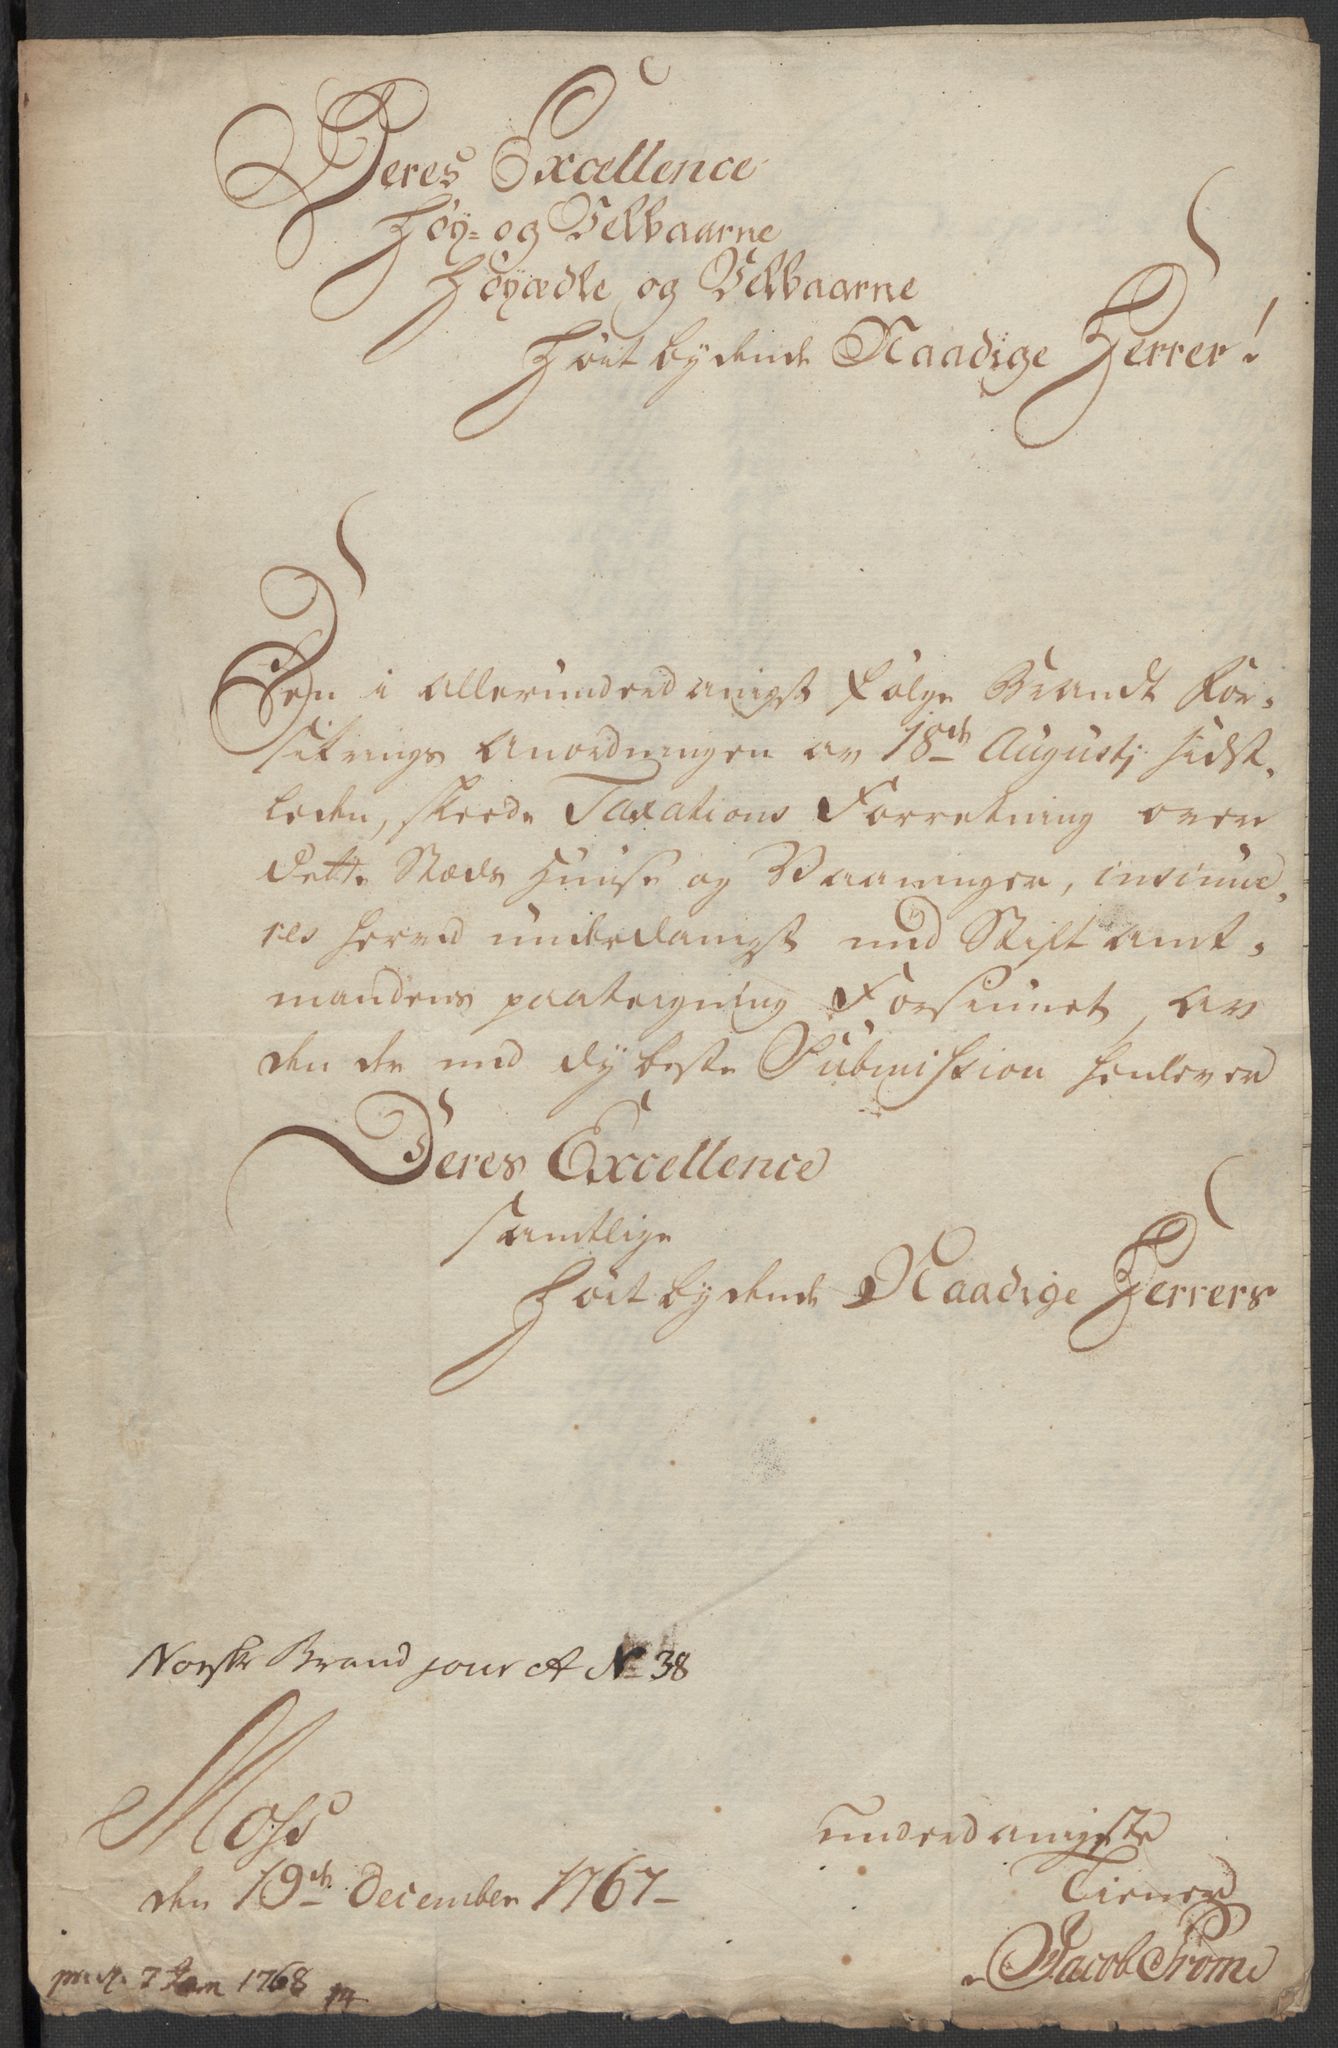 Deres Excellence
Høy- og Velbaarne
Høyædle og Velbaarne
Høit bydende Naadige Herrer!
Den i allerunderdanigst følge Brandt For-
sikrings Anordningen av 18de Augustj sidst-
leden, skeede Taxations Forretning over
dette Stæds Huuse og Vaaninger, insinue-
res herved underdanigst med Stiftamt-
mandens paategning Forsiunet, av
den der med dybeste Submission henlever
Deres Excellence
samtlige
Høit bydende Naadige Herrers
Norske Brand jour A No 38
Moss
den 19de December 1767
underdanigste
Tiener
Jacob Trøm
7 Jan 1768